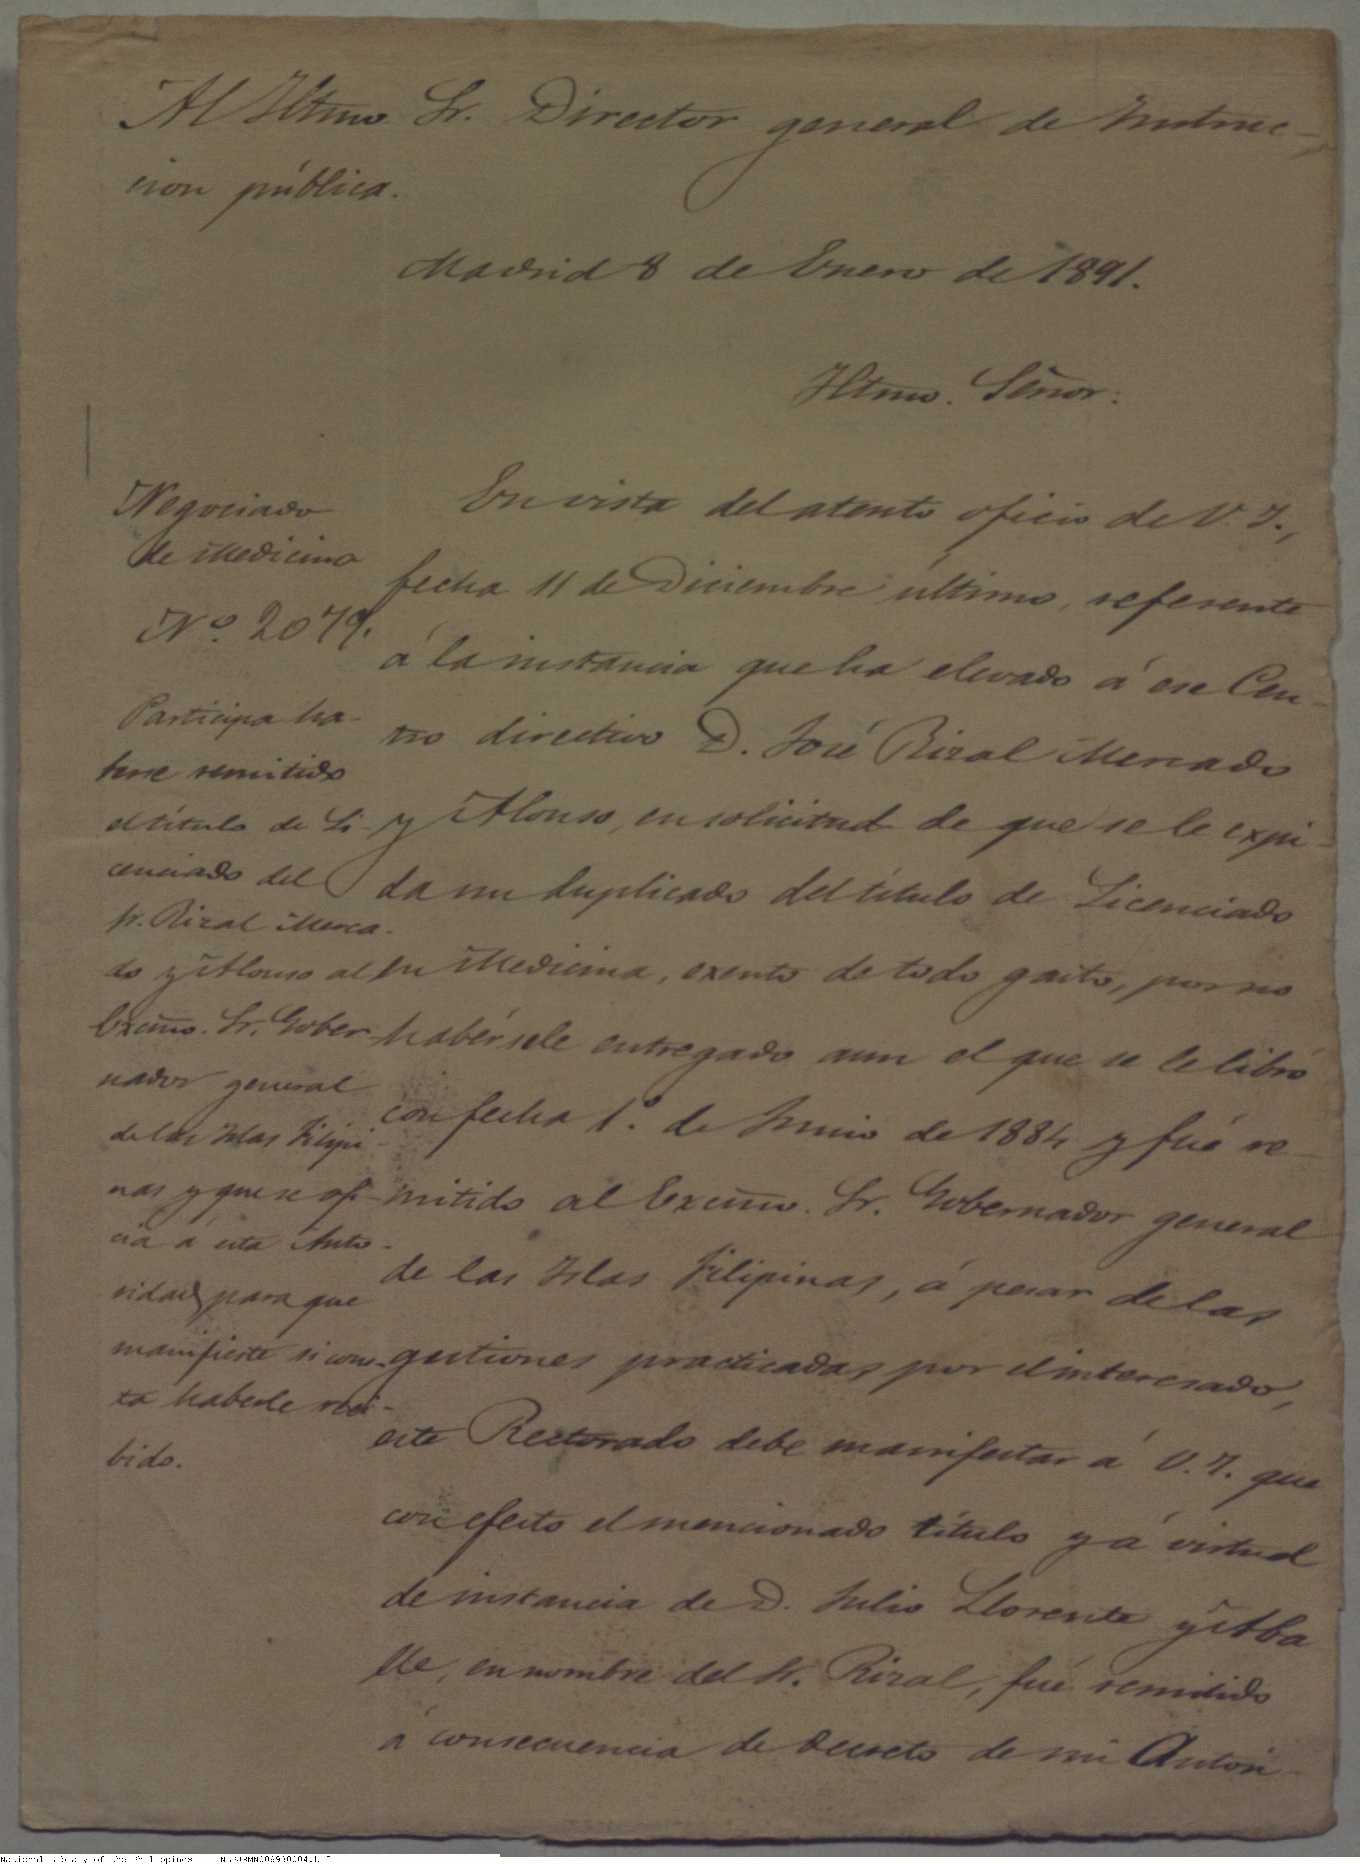 Al Iltmo. Sr. Director general de Instruc-
cion pública.
Madrid 8 de Enero de 1891.
Iltmo. Señor:
Negociado
de Medicina
Nº. 2079.
Participa ha-
berse remitido
el título de Li-
cenciado del
Sr. Rizal Merca-
do y Alonso al
Excmo. Sr. Gober-
nador general
de las Islas Filipi-
nas y que se ofi-
cia á esta Auto-
ridad para que
manifieste si cons-
ta haberle reci-
bido.
En vista del atento oficio de V. I.,
fecha 11 de Diciembre último, referente
á la instancia que ha elevado á ese Cen-
tro directivo D. José Rizal Mercado
y Alonso, en solicitud de que se le expi-
da un duplicado del título de Licenciado
en Medicina, exento de todo gasto, por no
habérsele entregado aun el que se le libró
con fecha 1º. de Junio de 1884 y fué re-
mitido al Excmo. Sr. Gobernador general
de las Islas Filipinas, á pesar de las
gestiones practicadas por el interesado,
este Rectorado debe manifestar á V. I. que
con efecto el mencionado título y á virtud
de instancia de D. Julio Llorente y Aba
lle, en nombre del Sr. Rizal, fué remitido
á consecuencia de decreto de mi Autori-
National Library of the Philippines